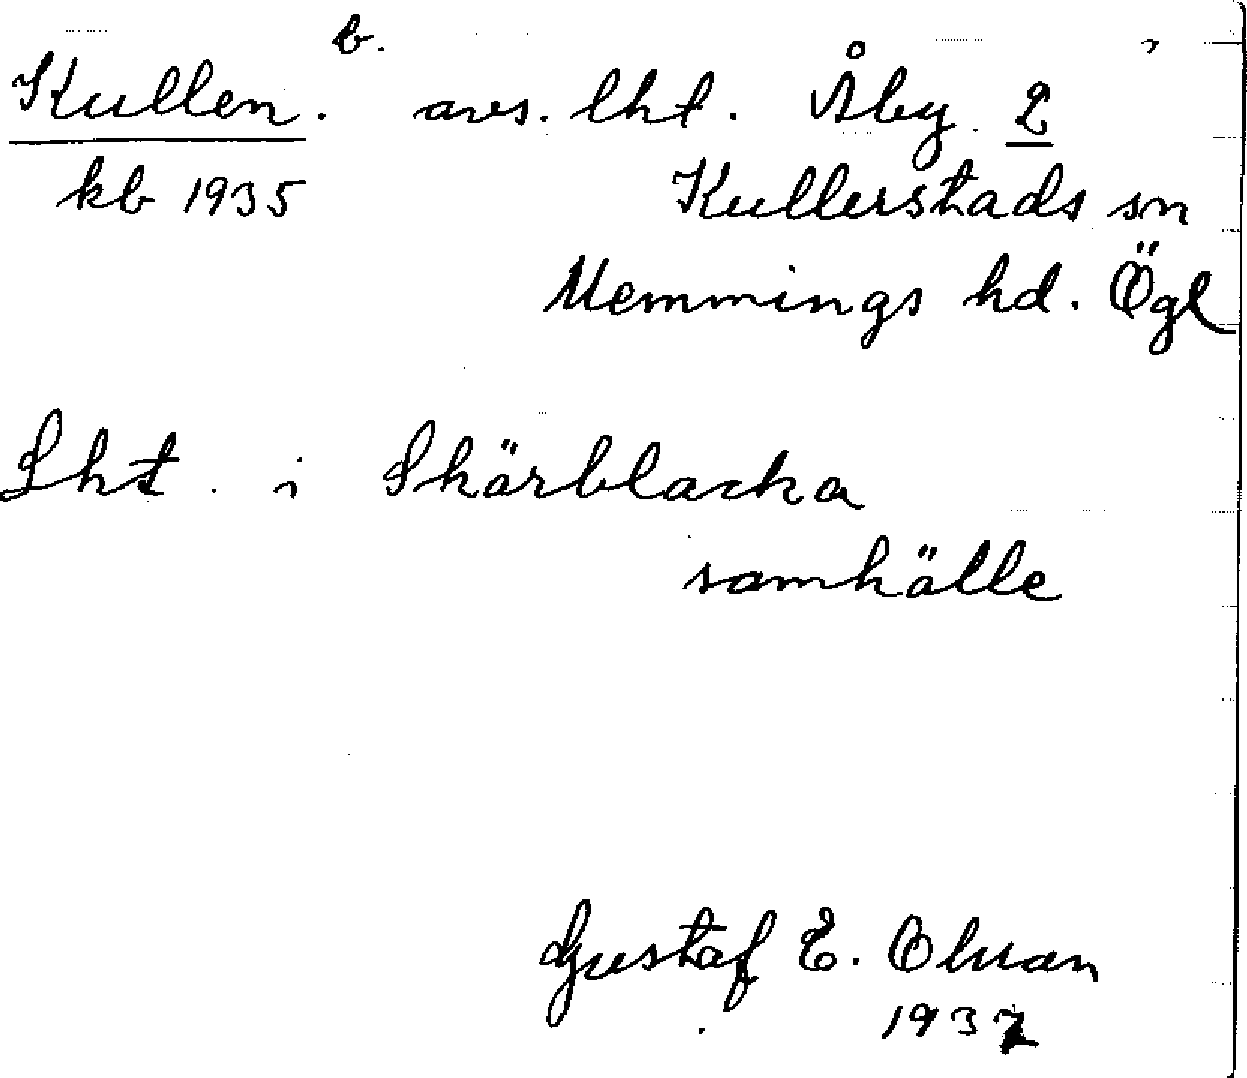 b.
Kullen. avs. lht. Åby 2
kb 1935 Kullerstads sn
Memmings hd. Ögl
Lht. i Skärblacka
samhälle
Gustaf E. Olsson
1937